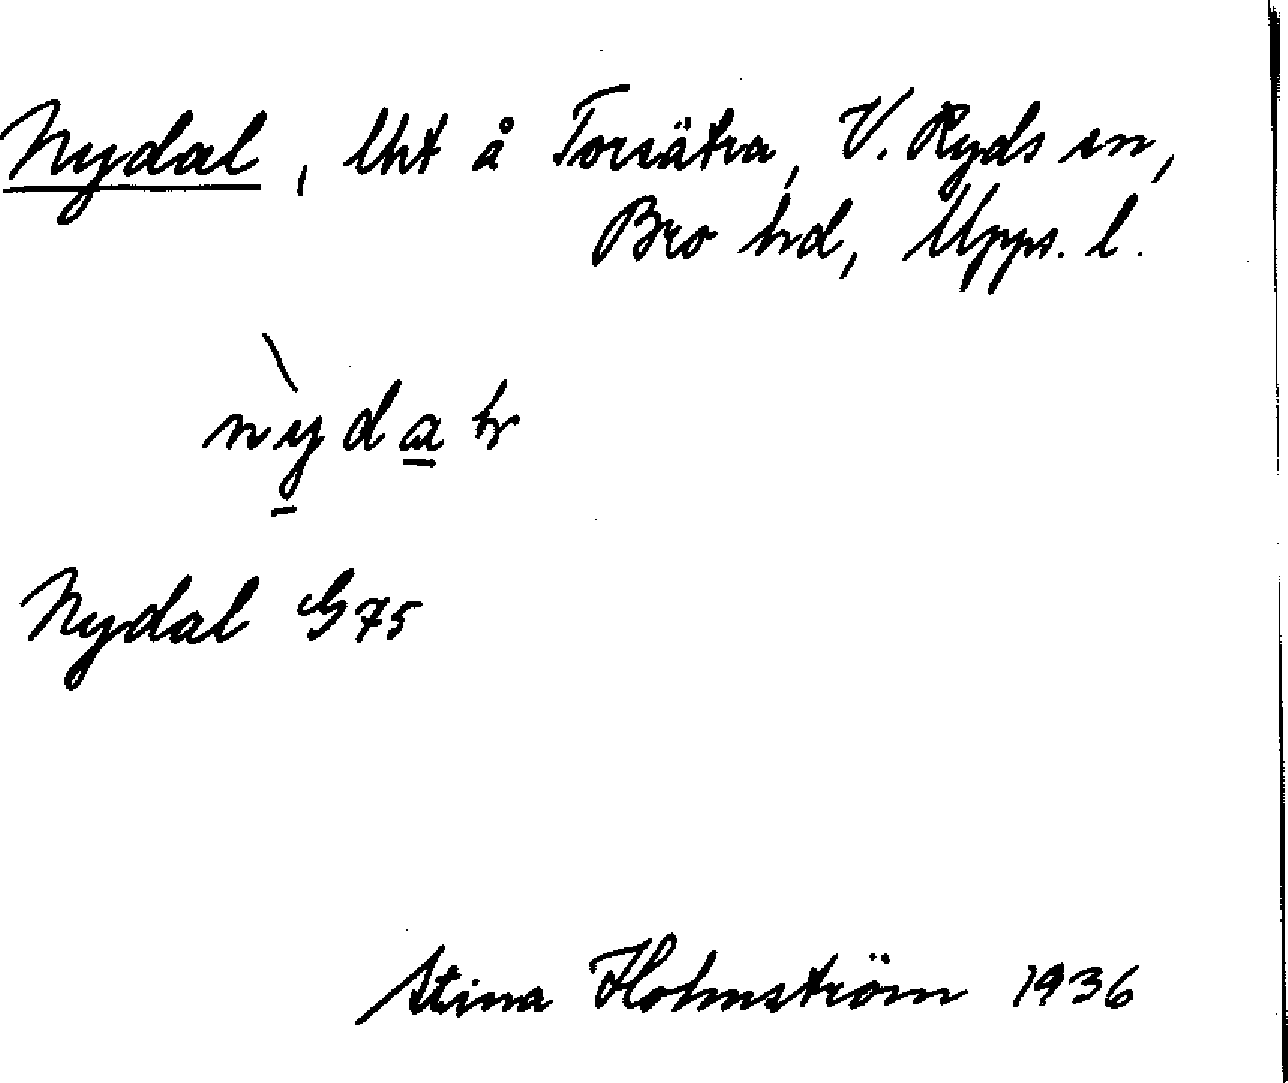 Nydal, lht å Torsätra, V. Ryds sn,
Bro hd, Upps. l.
nỳdal
Nydal G 75
Stina Holmström 1936